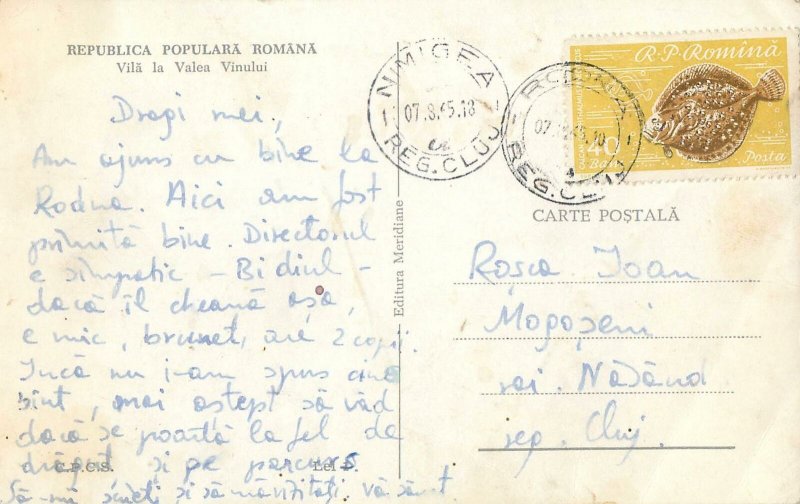 REPUBLICA POPULARĂ ROMÂNĂ
Vilă la Valea Vinului
Dragi mei,
Am ajuns cu bine la
Rodna. Aici am fost
primită bine. Directorul
e simpatic – Bidiul –
dacă îl cheamă așa,
e mic, brunet, are 2 copii.
Încă nu i-am spus cine
sînt, mai aștept să văd
dacă se poartă la fel de
drăguț și pe parcurs
Să-mi scrieți și să mă vizitați, vă
C.P.C.S.
Lei
Editura Meridiane
NIMIGEA
07.8.65.18
REG. CLUJ
RODNA
07
REG. CLUJ
R.P. Romînă
40
Bani
Posta
CARTE POȘTALĂ
Roșca Ioan
Mogoșeni
rai. Năsăud
reg. Cluj.